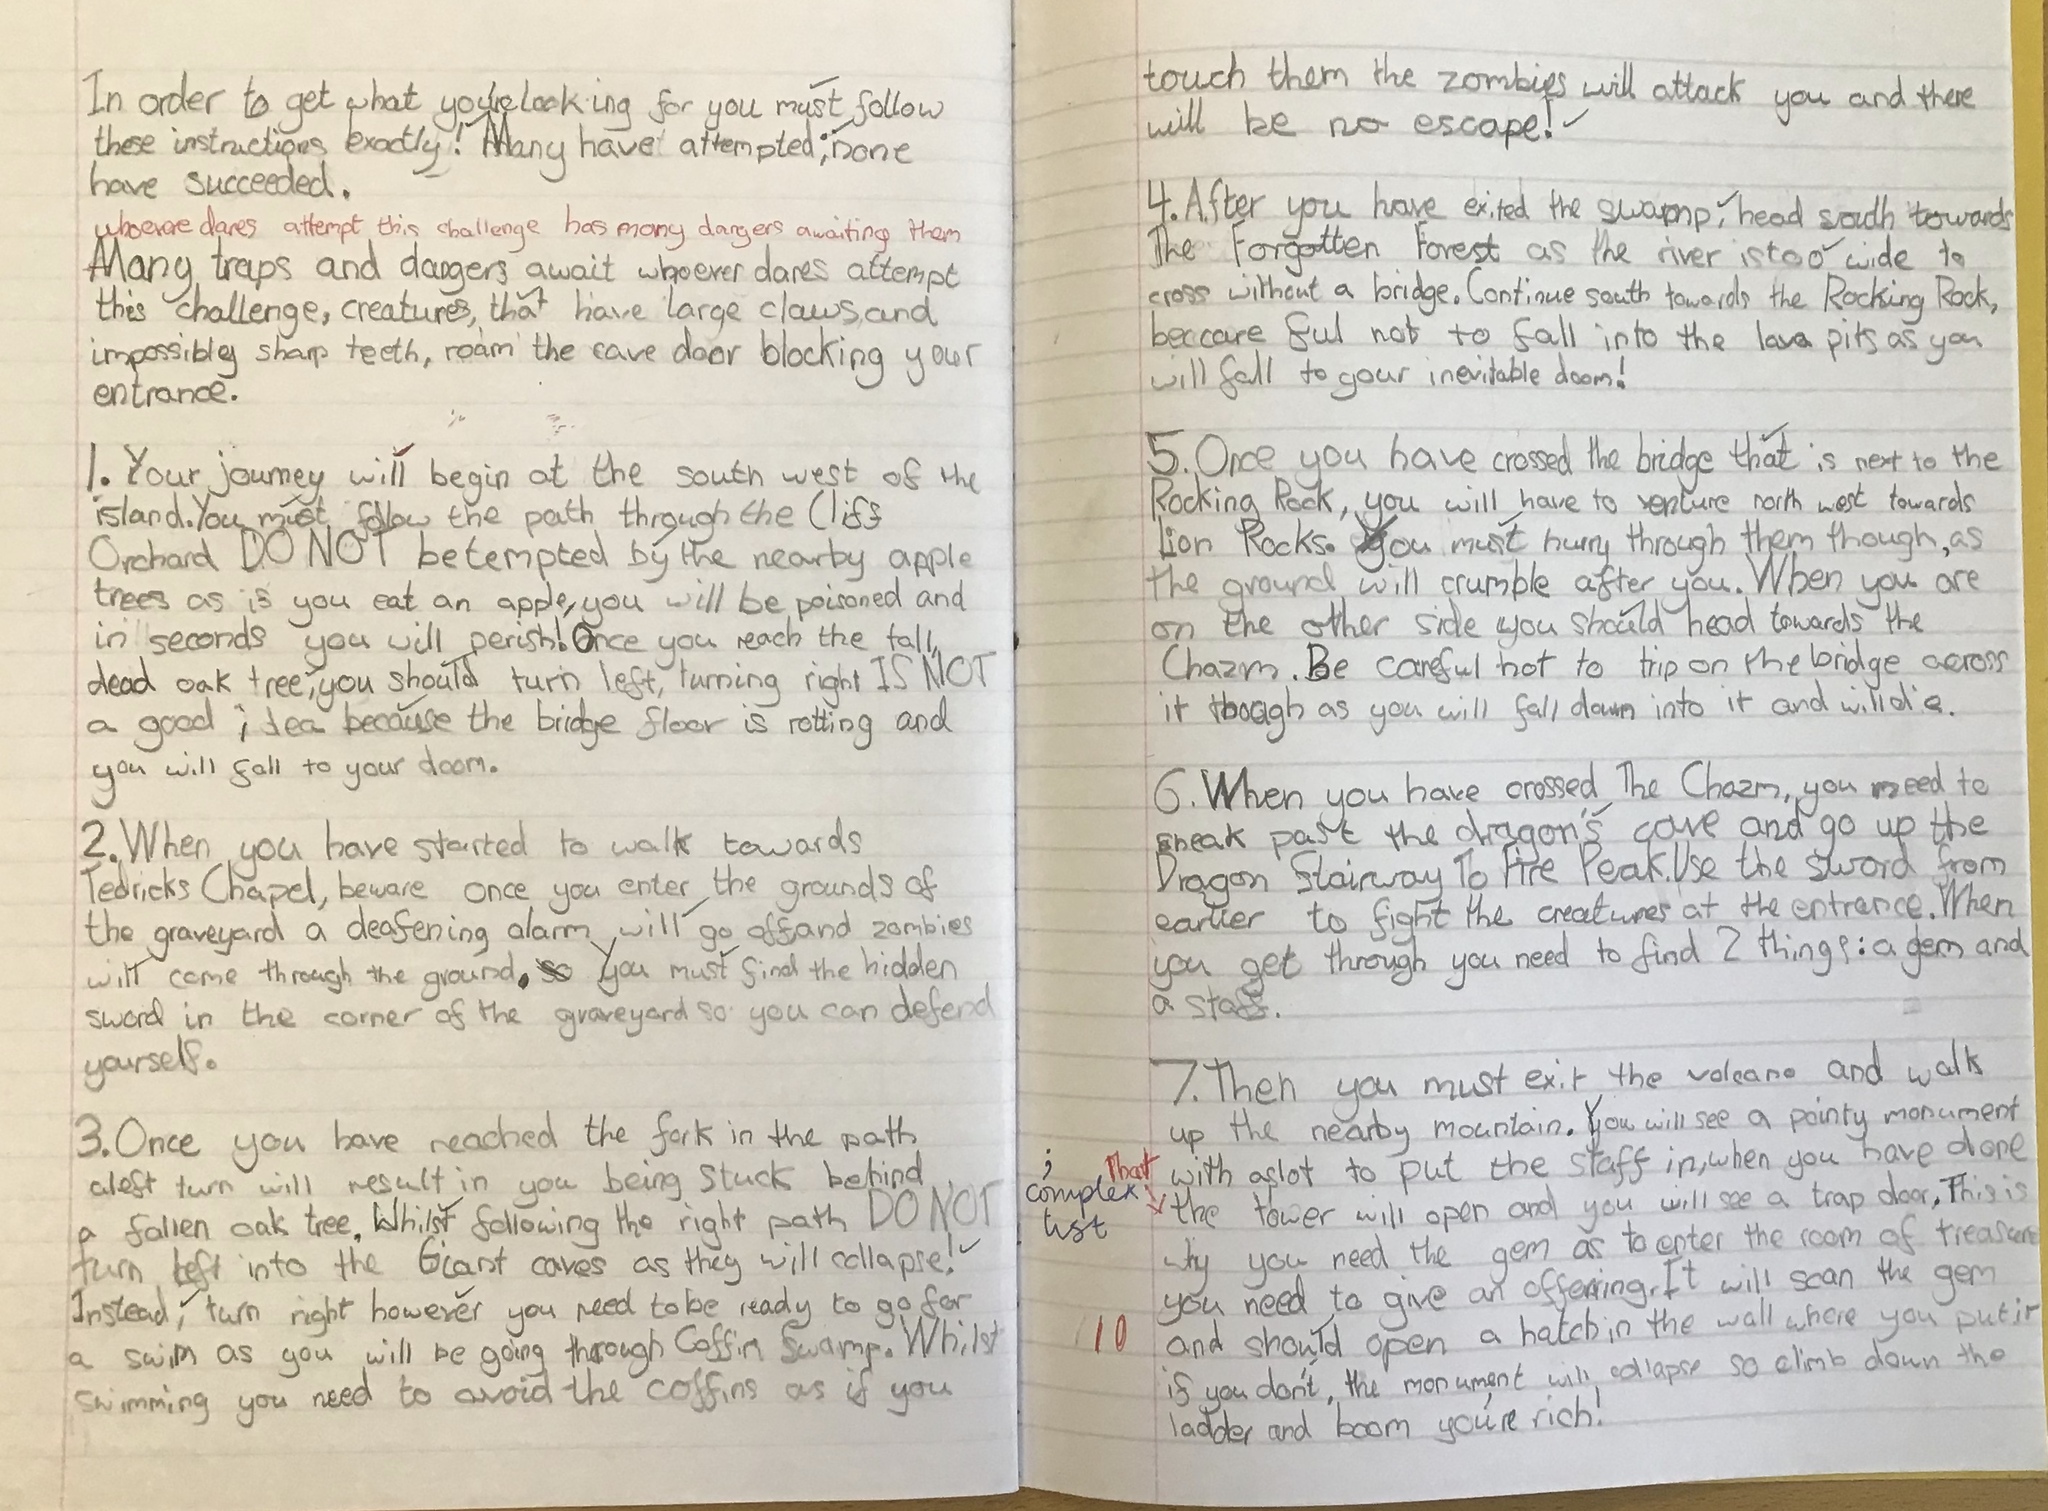 In order to get what you're looking for you must follow
these instructions exactly! Many have attempted; none
have succeeded.
whoever dares attempt this challenge has many dangers awaiting them
Many traps and dangers await whoever dares attempt
this challenge, creatures, that have large claws and
impossibly sharp teeth, roam the cave door blocking your
entrance.
1. Your journey will begin at the south west of the
island. You must follow the path through the Cliff
Orchard DO NOT be tempted by the nearby apple
trees as if you eat an apple, you will be poisoned and
in seconds you will perish! Once you reach the tall,
dead oak tree, you should turn left, turning right IS NOT
a good idea because the bridge floor is rotting and
you will fall to your doom.
2. When you have started to walk towards
Tedricks Chapel, beware once you enter the grounds of
the graveyard a deafening alarm will go off and zombies
will come through the ground. so You must find the hidden
sword in the corner of the graveyard so you can defend
yourself.
3. Once you have reached the fork in the path
a left turn will result in you being stuck behind
a fallen oak tree. Whilst following the right path DO NOT
turn left into the Giant caves as they will collapse!
Instead, turn right however you need to be ready to go for
a swim as you will be going through Coffin Swamp. Whilst
swimming you need to avoid the coffins as if you
touch them the zombies will attack you and there
will be no escape!
4. After you have exited the swamp, head south towards
The Forgotten Forest as the river is too wide to
cross without a bridge. Continue south towards the Rocking Rock,
beccare ful not to fall into the lava pits as you
will fall to your inevitable doom!
5. Once you have crossed the bridge that is next to the
Rocking Rock, you will have to venture north west towards
Lion Rocks. You must hurry through them though, as
the ground will crumble after you. When you are
on the other side you should head towards the
Chazm. Be careful not to trip on the bridge across
it though as you will fall down into it and will die.
6. When you have crossed The Chazm, you need to
sneak past the dragon's cave and go up the
Dragon Stairway To Fire Peak. Use the sword from
earlier to fight the creatures at the entrance. When
you get through you need to find 2 things: a gem and
a staff.
7. Then you must exit the volcano and walk
up the nearby mountain. You will see a pointy monument
with a slot to put the staff in, when you have done
That
the tower will open and you will see a trap door, This is
; complex list
why you need the gem as to enter the room of treasure
you need to give an offering. It will scan the gem
and should open a hatch in the wall where you put it
10
if you don't, the monument will collapse so climb down the
ladder and boom you're rich!